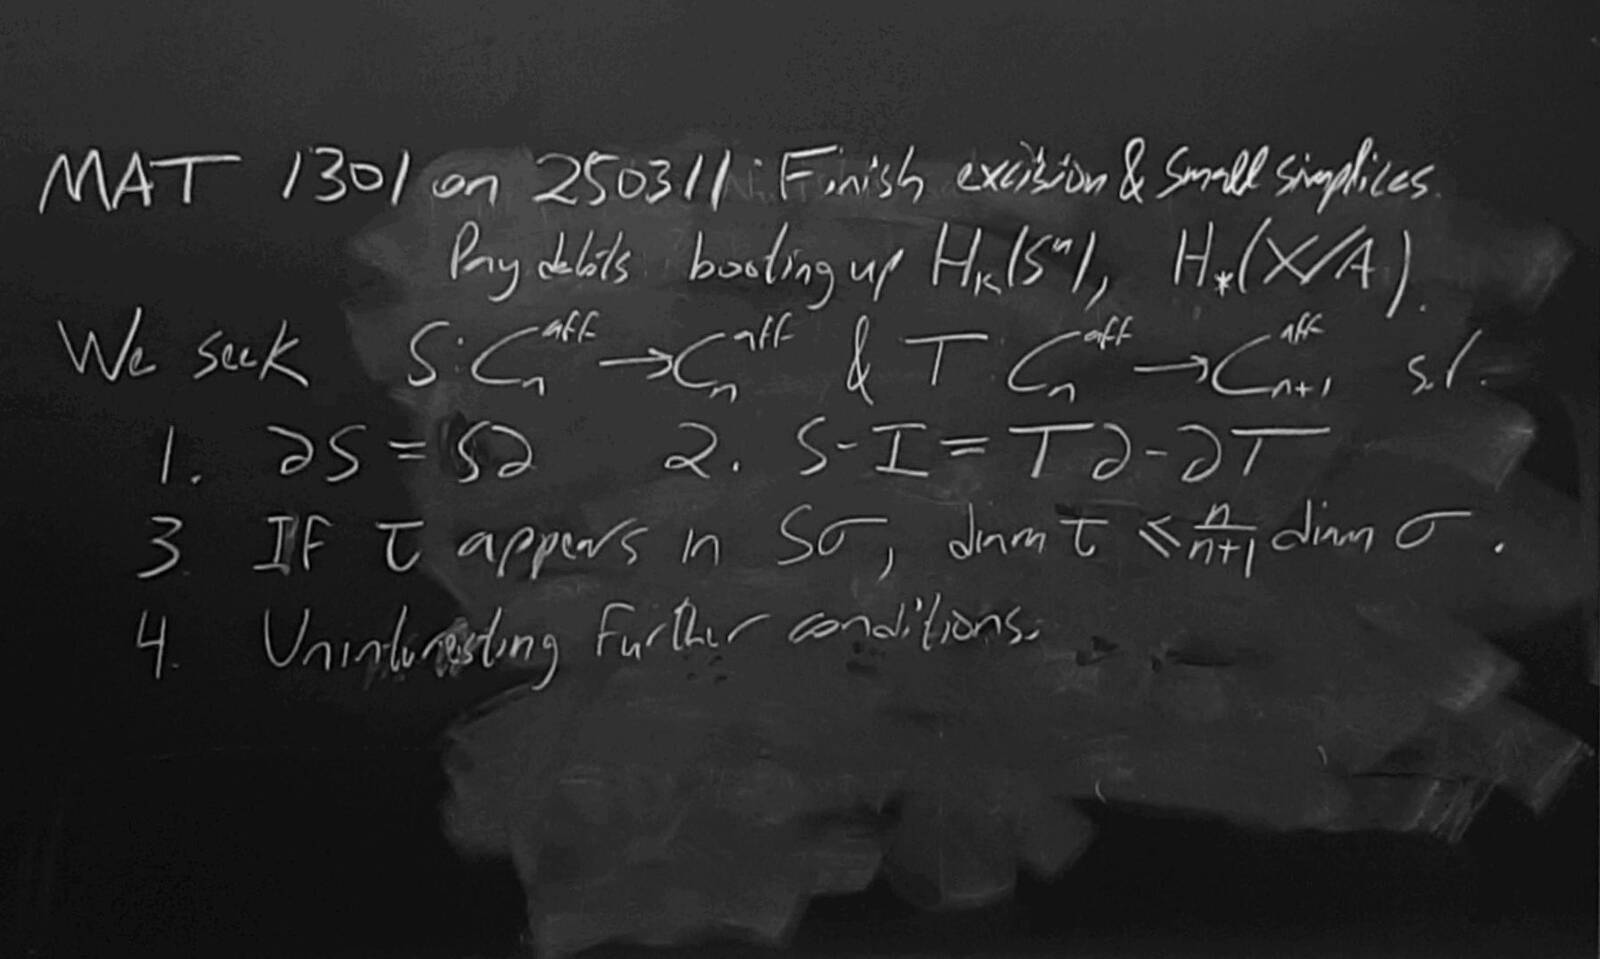 MAT 1301 on 250311: Finish excision & small simplices.
Pay debts: booting up H_k(S^n), H_*(X/A).
We seek S: C_n^aff → C_n^aff & T: C_n^aff → C_{n+1}^aff s.t.
1. ∂S = S∂ 2. S-I = T∂-∂T
3. If τ appears in Sσ, diam τ ≤ n/(n+1) diam σ.
4. Uninteresting further conditions.